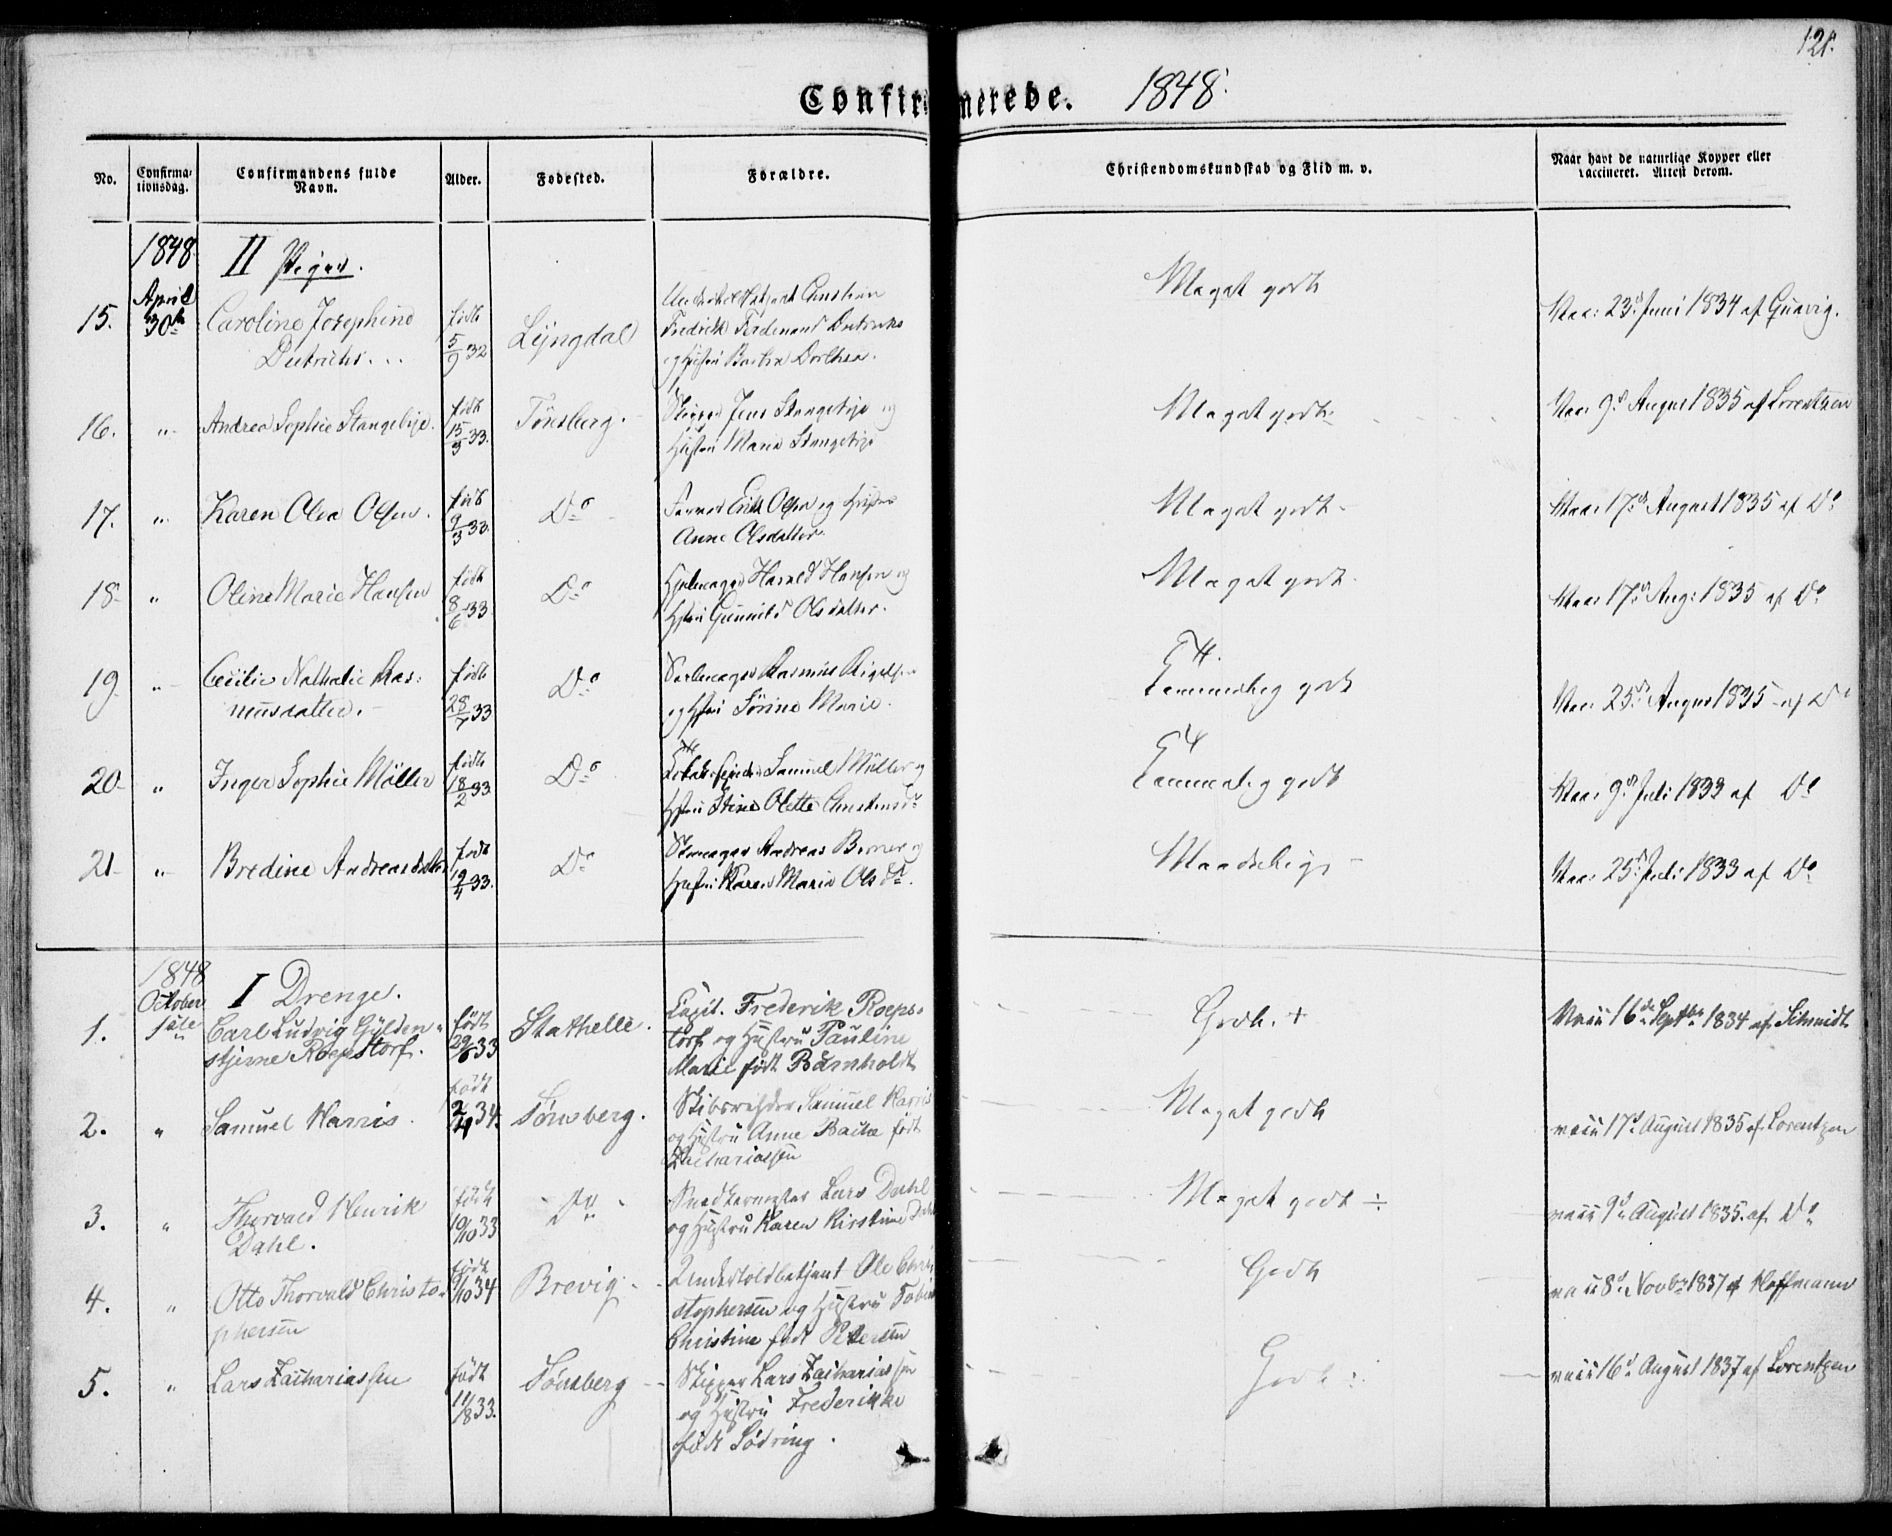 121.
Confirmerede. 1848.
No.
Confirma-
tionsdag.
Confirmandens fulde
Navn.
Alder.
Fødested.
Forældre.
Christendomskundskab og Flid m. v.
Naar havt de naturlige Kopper eller
vaccineret. Attest derom.
1848 II Piger.
April
30te
15. Caroline Josephine
født
5/9 32 Lyngdal
Christian
Fredrik Ferdinand
og Hustru
Meget godt
Vacc: 23d Juni 1834 af
16. " Andrea Sophie Stangebye.
født
15/3 33. Tønsberg.
Skipper Jens Stangebye og
Hustru Maria Stangebye
Meget godt
Vacc 9d August 1835 af Lorentzen
17. " Karen Olea Olsen.
født
9/3 33. Do
Erik Olsen og Hustru
Anne Olsdatter
Meget godt
Vacc 17d August 1835 af Do
18. " Oline Marie Hansen
født
8/6 33. Do
Harald Hansen og
Hstru Gunnild Olsdatter.
Meget godt.
Vacc 17d Aug: 1835 af Do
19. " Cecilie Nathalie Ras-
musdatter.
født
28/7 33 Do
Rasmus
og Hstru Sørine Marie.
Temmelig godt
Vacc 25d August 1835 af Do
20. " Inger Sophie Møller
født
18/2 33. Do
Samuel Møller og
Hstru Stine Olette
Temmelig godt
Vacc 9d Juli 1833 af Do
21. " Bredine Andreasdatter
født
19/4 33. Do
Andreas og
Hustru Karen Maria Olsdr.
Maadelig
Vacc 25d Juli 1833 af Do
1848
October I Drenge.
1ste
1. Carl Ludvig Gylden-
stjerne Roepstorf.
født
29/6 33 Stathelle.
Capit. Frederik Roeps-
torf og Hustru Pauline
Marie født Barnholdt
Godt. +
Vacc 16de Septbr 1834 af Schmidt
2. " Samuel Harris.
født
2/4 34. Tønsberg.
Skibsrheder Samuel Harris
og Hustru Anne født
Zachariassen
Meget godt
vacc 17d August 1835 af Lorentzen
3. " Thorvald Henrik
Dahl.
født
19/10 33 Do
Snedkermester Lars Dahl
og Hustru Karen Kirstine Dahl
Meget godt ÷
vacc 9d August 1835. af Do
4. " Otto Thorvald Christo-
phersen
født
9/10 34 Brevig
Undertoldbetjent Ole Chri-
stophersen og Hustru
Christine født Petersen
Godt
vacc 8d Novbr 1837 af Hoffmann
5. " Lars Zachariassen
født
11/8 33. Tønsberg
Skipper Lars Zachariassen
og Hustru Frederikke
født Sødring.
Godt
vacc 16d August 1837 af Lorentzen